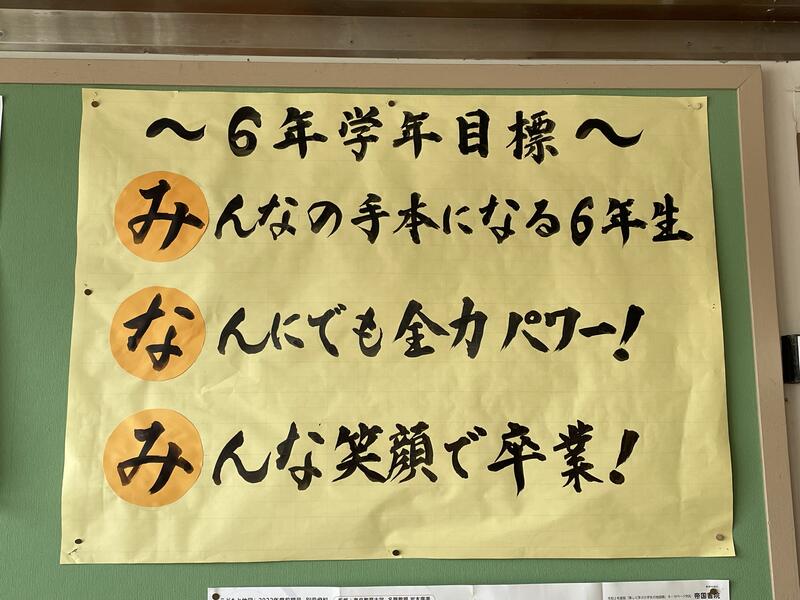 ～6年学年目標～
みんなの手本になる6年生
なんにでも全力パワー！
みんな笑顔で卒業！
帝国書院